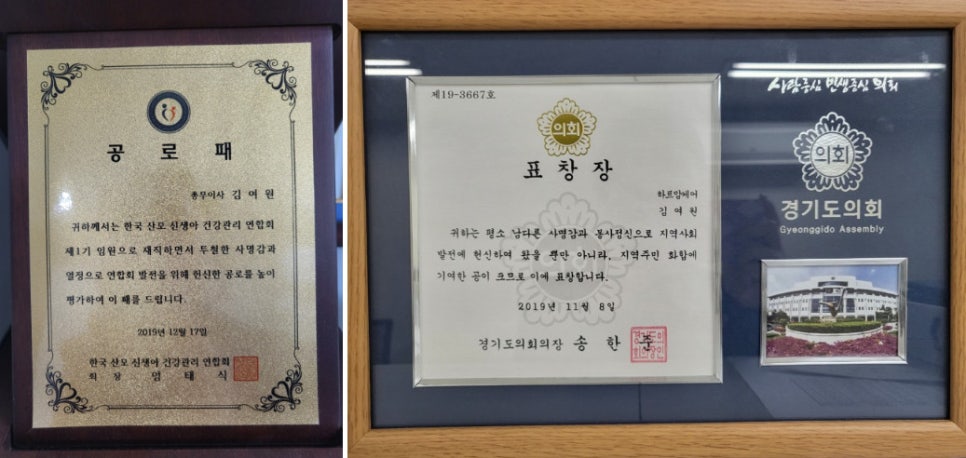 공로패
총무이사 김여원
귀하께서는 한국 산모 신생아 건강관리 연합회
제1기 임원으로 재직하면서 투철한 사명감과
열정으로 연합회 발전을 위해 헌신한 공로를 높이
평가하여 이 패를 드립니다.
2019년 12월 17일
한국 산모 신생아 건강관리 연합회
회 장 엄 태 식
제19-3667호
의회
표창장
하트맘케어
김여원
귀하는 평소 남다른 사명감과 봉사정신으로 지역사회
발전에 헌신하여 왔을 뿐만 아니라, 지역주민 화합에
기여한 공이 크므로 이에 표창합니다.
2019년 11월 8일
경기도의회의장 송 한 준
사람중심 민생중심 의회
의회
경기도의회
Gyeonggido Assembly